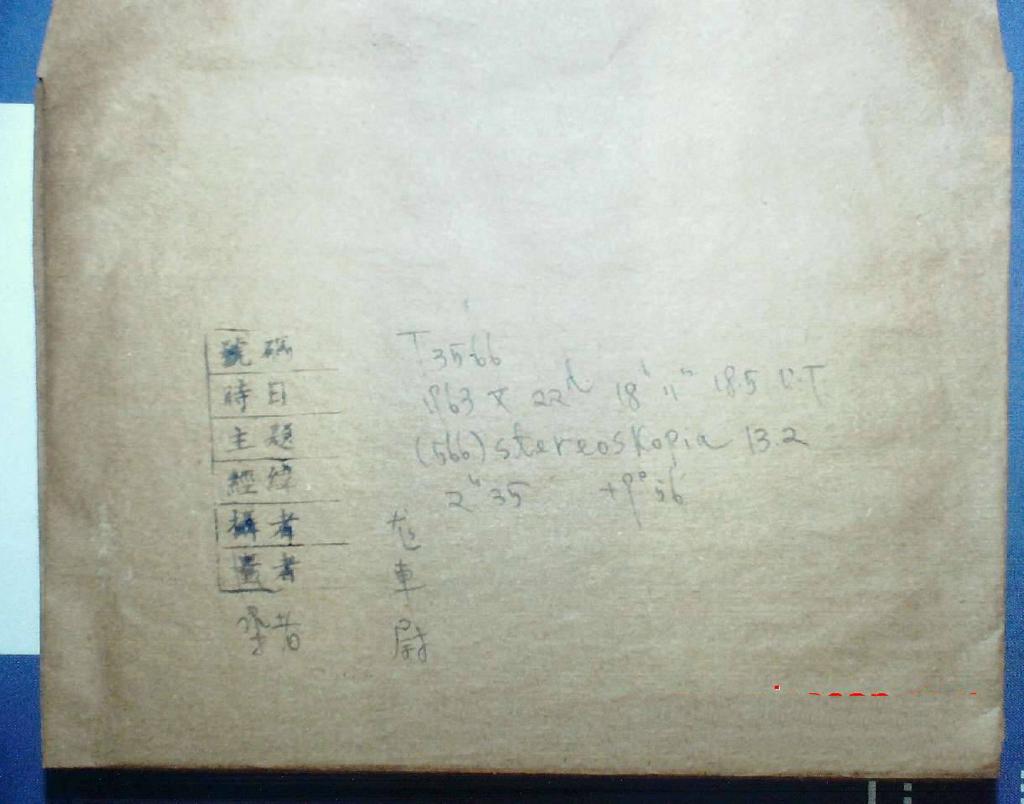 號碼 T 3566
時日 1963 X 22d 18h 11m 18.5 U.T.
主題 (566) stereoskopia 13.2
經緯 2h 35 +9° 56
攝者
量者 車
者 尉